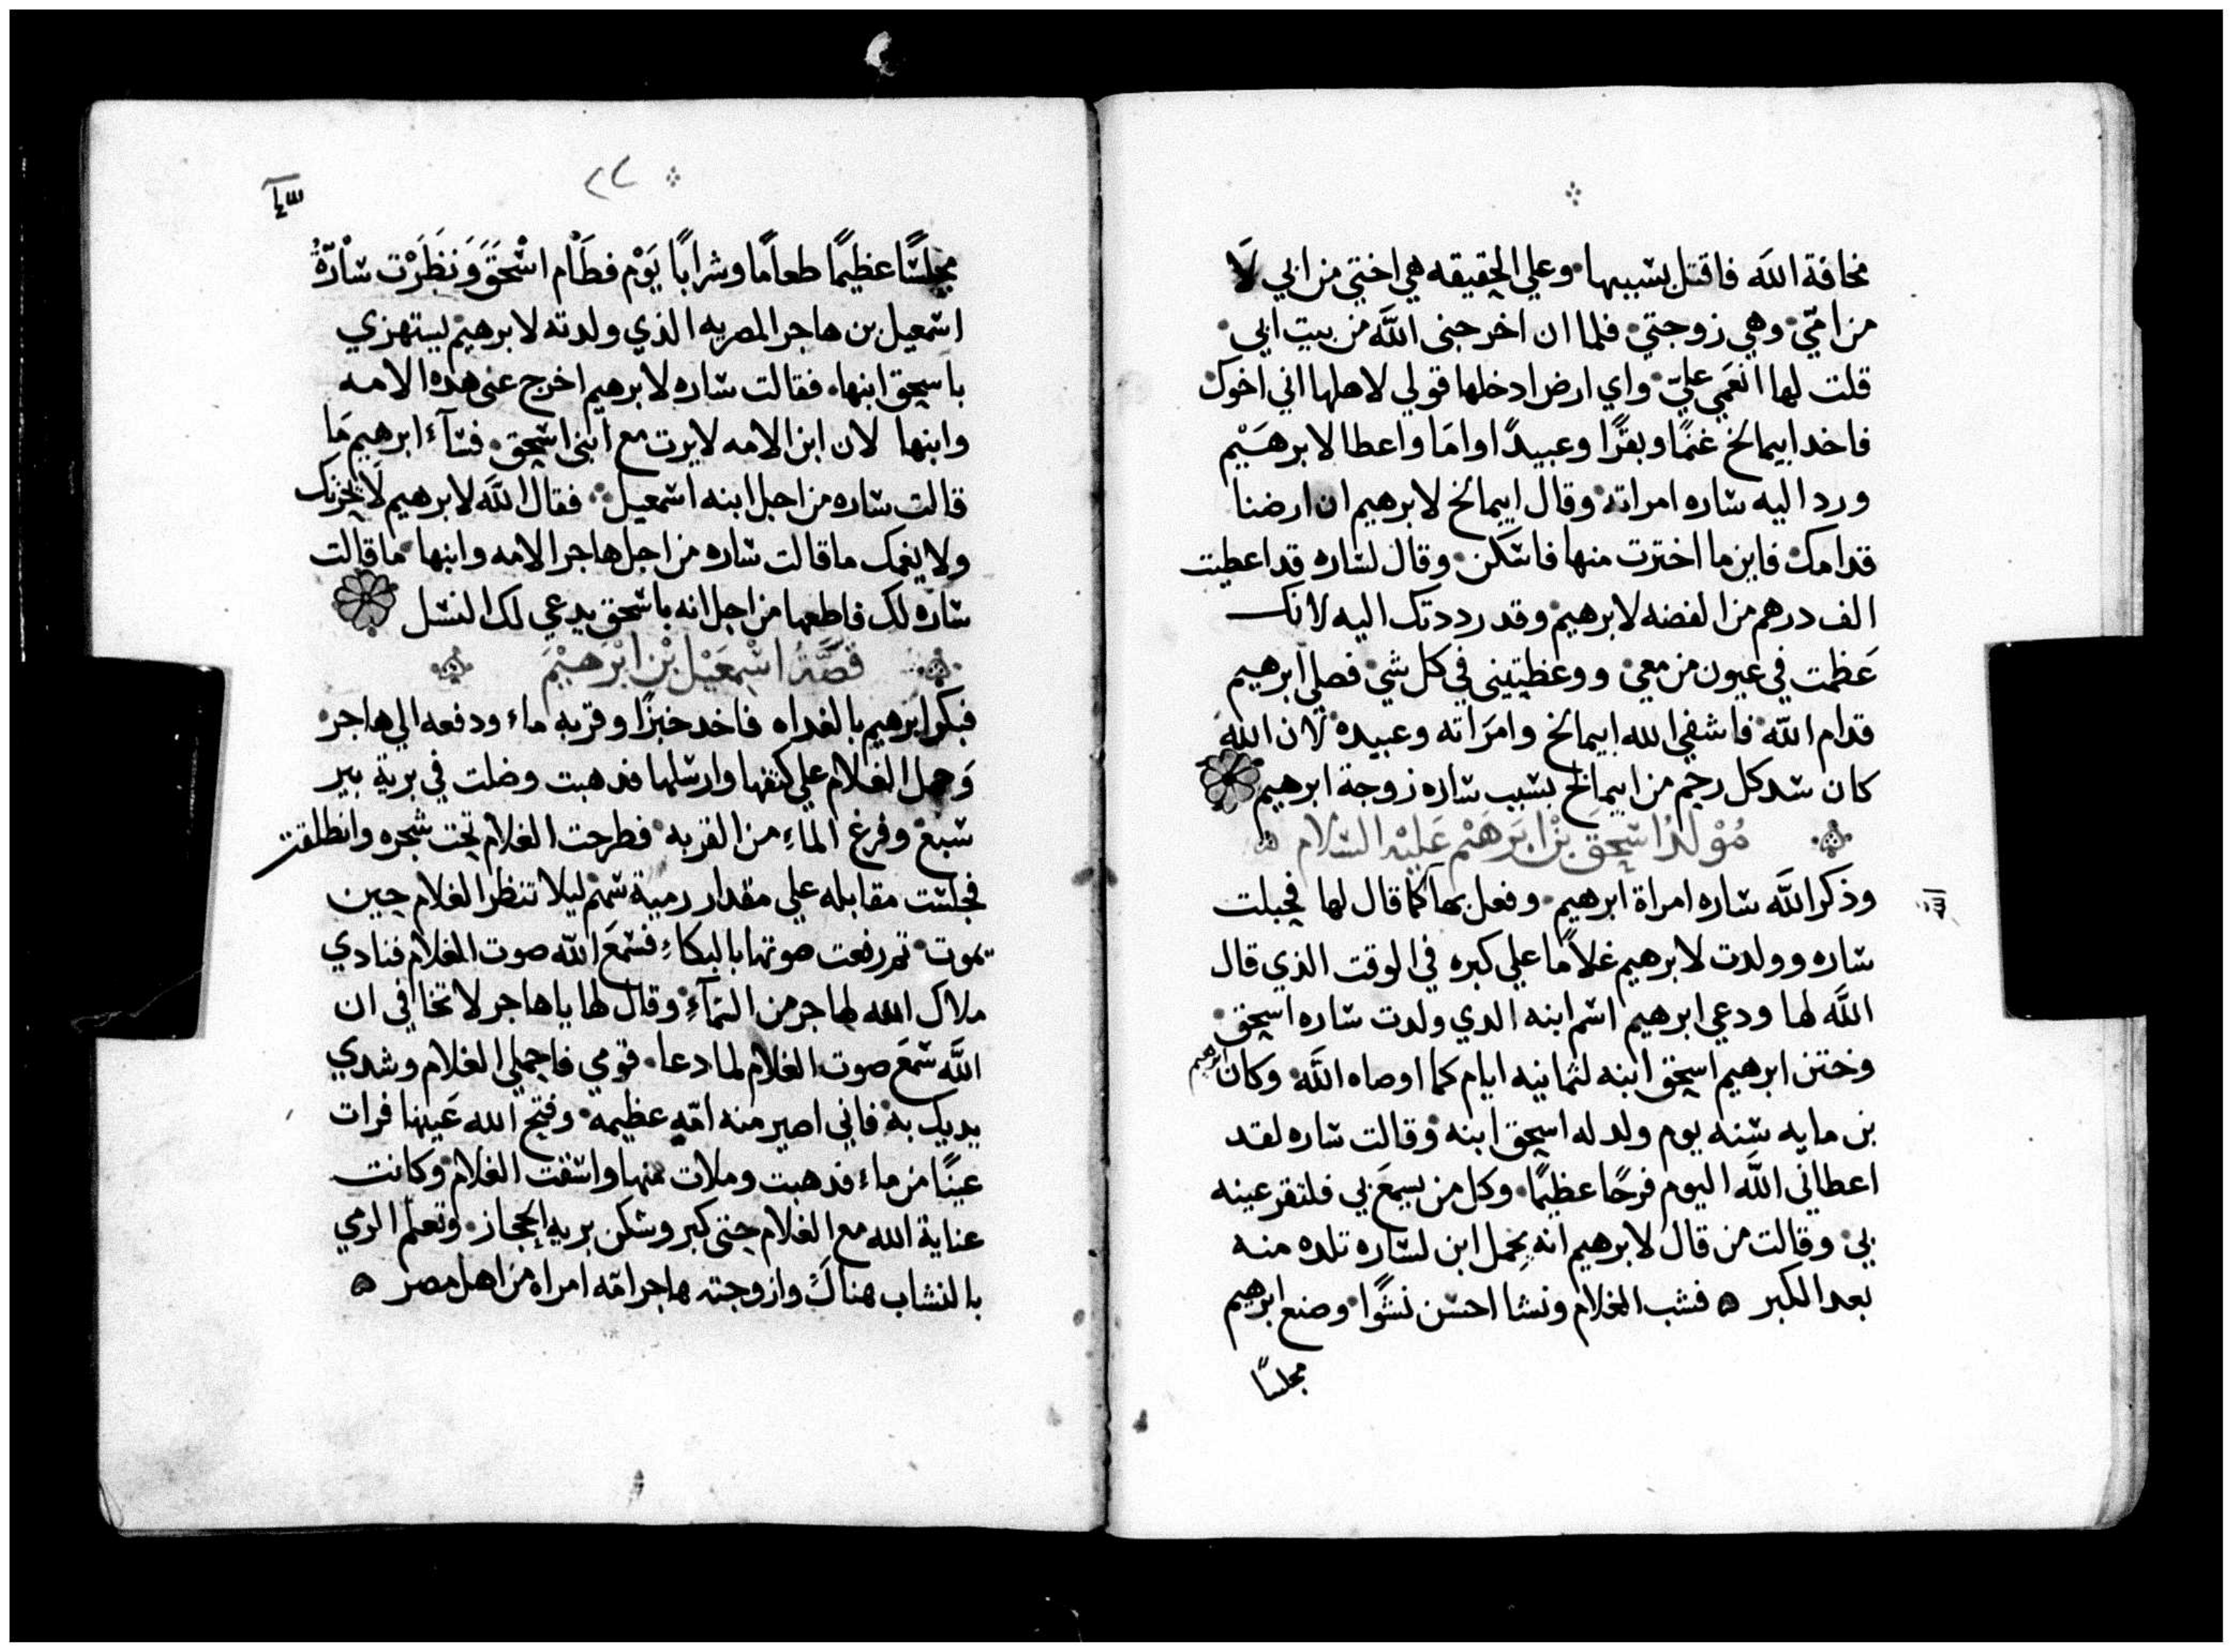 مخافة الله فاقتل بسببها وعلي الحقيقه هي اختي من ابي لَا
من امّي وهي زوجتي فلما ان اخرجني الله من بيت ابي
قلت لها انعَمي عليّ واي ارض ادخلها قولي لاهلها اني اخوك
فاخد ابيمالخ غنمًا وبقرًا وعبيدًا وامَا واعطا لابرهَيْم
ورد اليه ساره امراته وقال ابيمالخ لابرهيم ان ارضنا
قدامك فاين ما اخترت منها فاسكن وقال لساره قد اعطيت
الف درهم من الفضه لابرهيم وقد رددتك اليه لانك
عَظمت في عيون من معي ووعظتيني في كل شي فصلي ابرهيم
قدام الله فاشفي الله ابيمالخ وامرَاته وعبيده لان الله
كان سد كل رحم من ابيمالخ بسبب ساره زوجة ابرهيم
مُوْلدُ اسحق بْن ابرَهَيْم عَليْه السَلام
وذكر الله ساره امراة ابرهيم وفعل بها كما قال لها فحبلت
ساره وولدت لابرهيم غلامًا علي كبره في الوقت الذي قال
الله لها ودعي ابرهيم اسم ابنه الدي ولدت ساره اسحق
وختن ابرهيم اسحق ابنه لثمانيه ايام كما اوصاه الله وكان ابرهيم
بن مايه سنه يوم ولد له اسحق ابنه وقالت ساره لقد
اعطاني الله اليوم فرحًا عظيمًا وكل من يسمعَ بي فلتقر عينه
بي وقالت من قال لابرهيم انه يحمل ابن لساره تلده منه
بعد الكبر ه فشب الغلام ونشا احسن نشوًا وصنع ابرهيم
مجلسًا
٢٧
مجلسًا عظيمًا طعامًا وشرابًا يَوْم فطَاْم اسْحقَ وَنَظَرْت سَاْرَّةُ
اسمعيل بن هاجر المصريه الذي ولدته لابرهيم يستهزي
باسحق ابنها فقالت ساره لابرهيم اخرج عني هده الامه
وابنها لان ابن الامه لايرت مع ابني اسحق فسآء ابرهيم مَا
قالت ساره من اجل ابنه اسمعيل فقال الله لابرهيم لَا يحزنك
ولا يغمك ما قالت ساره من اجل هاجر الامه وابنها ما قالت
ساره لك فاطعها من اجل انه باسحق يدعي لك النسل
قصَّةُ اسْمعَيْل بْن ابْرَهيْمَ
فبكر ابرهيم بالغداه فاخد خبزًا وقربه ماء ودفعه الي هاجر
وَحمل الغلام علي كتفها وارسلها فدهبت وضلت في برية بير
سبع وفرغ الماءِ من القربه فطرحت الغلام تحت شجره وانطلقت
فجلست مقابله علي مقدار رمية سهم ليلا تنظر الغلام حين
يموت تم رفعت صوتها بالبكاءِ فسمعَ الله صوت الغلام فنادي
ملاك الله لهاجر من السَمآءِ وقال لها ياهاجر لا تخافي ان
الله سَمعَ صوت الغلام لما دعا قومي فاحملي الغلام وشدي
يديك به فاني اصير منه امّه عظيمه وفتح الله عَينها فرات
عينًا من ماء فدهبت وملات منها واسقت الغلام وكانت
عناية الله مع الغلام حتي كبر وسكن بريه الحجاز وتعلم الرمي
بالنشاب هناك وازوجته هاجر امّه امراه من اهل مصر ه